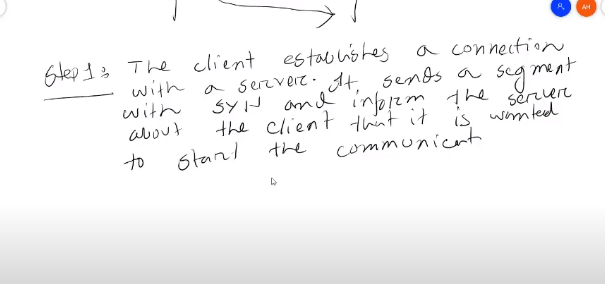 Step 1: The client establishes a connection
with a server. It, sends a segment
with SYN and inform the server
about the client that it is wanted
to start the communicat
AH